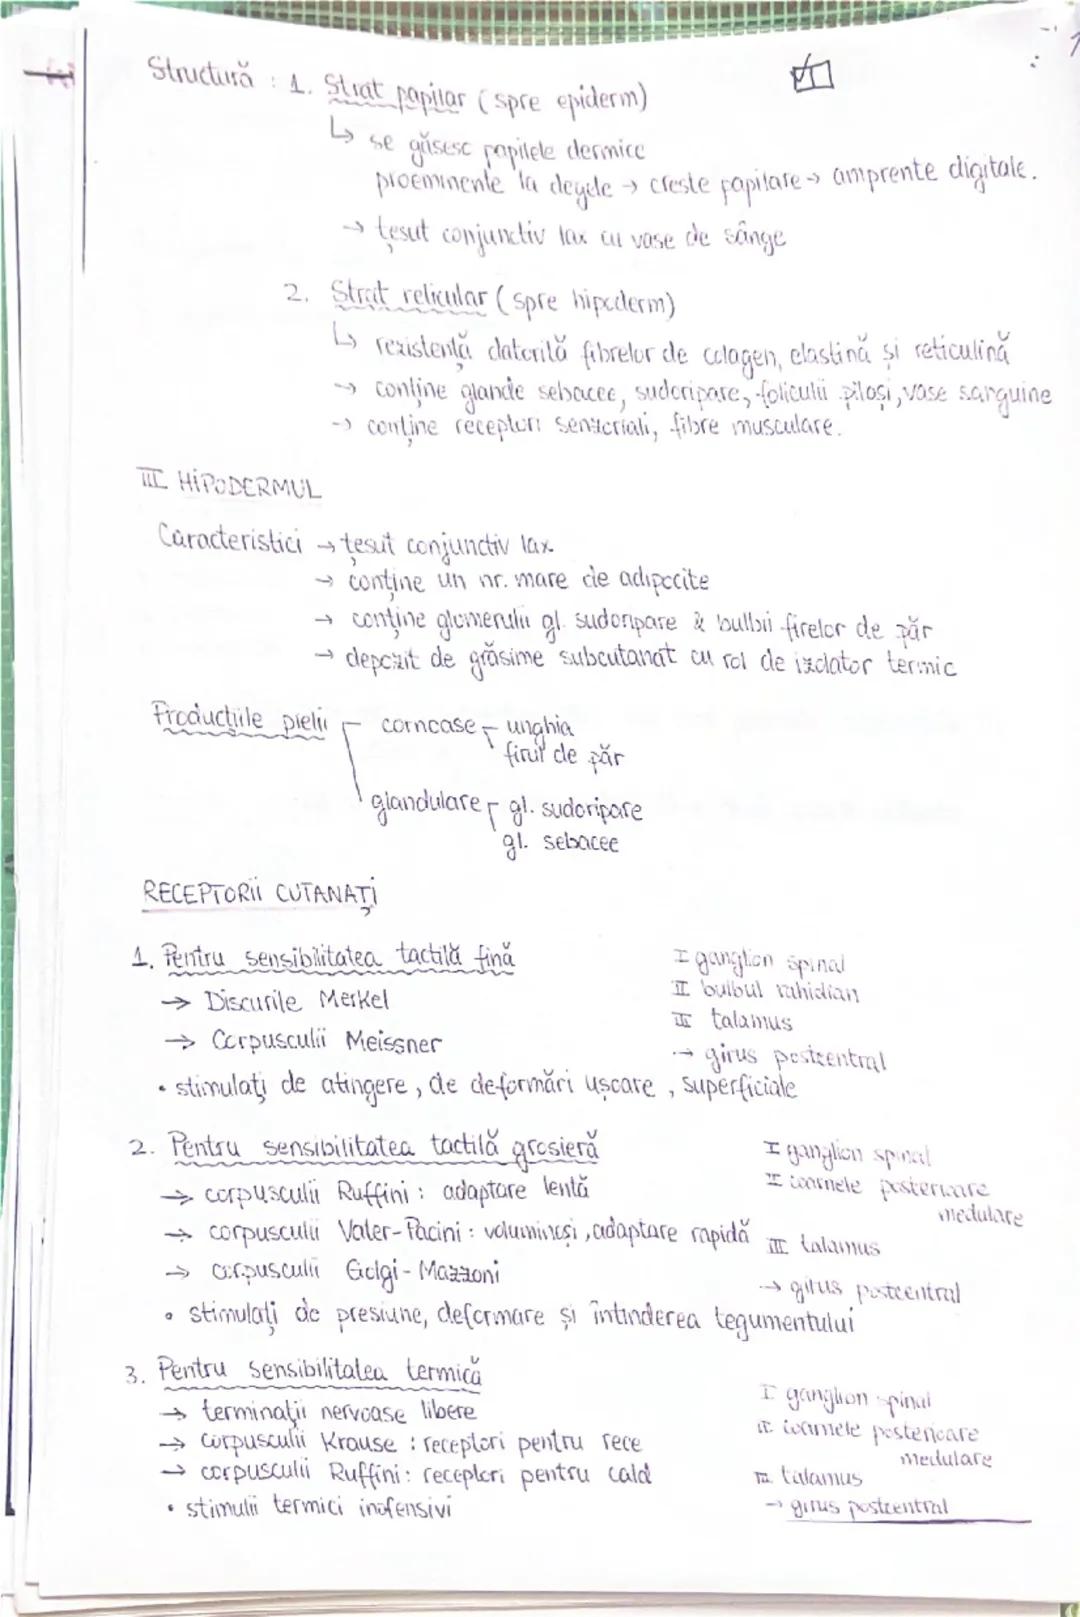 Structură : 1. Strat papilar (spre epiderm)
↳ se găsesc papilele dermice
proeminente la degete → creste papilare → amprente digitale.
→ țesut conjunctiv lax cu vase de sânge
2. Strat reticular (spre hipoderm)
↳ rezistență datorită fibrelor de colagen, elastină și reticulină
→ conține glande sebacee, sudoripare, foliculii piloși, vase sanguine
→ conține receptori senzoriali, fibre musculare.
III HIPODERMUL
Caracteristici → țesut conjunctiv lax
→ conține un nr. mare de adipocite
→ conține glomerulii gl. sudoripare & bulbii firelor de păr
→ depozit de grăsime subcutanat cu rol de izolator termic
Producțiile pielii
cornoase
unghia
firul de păr
glandulare
gl. sudoripare
gl. sebacee
RECEPTORII CUTANAȚI
1. Pentru sensibilitatea tactilă fină
→ Discurile Merkel
→ Corpusculii Meissner
I ganglion spinal
II bulbul rahidian
III talamus
→ girus postcentral
• stimulați de atingere, de deformări ușoare, superficiale
2. Pentru sensibilitatea tactilă grosieră
→ corpusculii Ruffini : adaptare lentă
→ corpusculii Vater-Pacini : voluminoși, adaptare rapidă
→ corpusculii Golgi-Mazzoni
I ganglion spinal
II coarnele posterioare
medulare
III talamus
→ girus postcentral
• stimulați de presiune, deformare și întinderea tegumentului
3. Pentru sensibilitatea termică
→ terminații nervoase libere
→ corpusculii Krause : receptori pentru rece
→ corpusculii Ruffini : receptori pentru cald
• stimulii termici inofensivi
I ganglion spinal
II coarnele posterioare
medulare
III talamus
→ girus postcentral